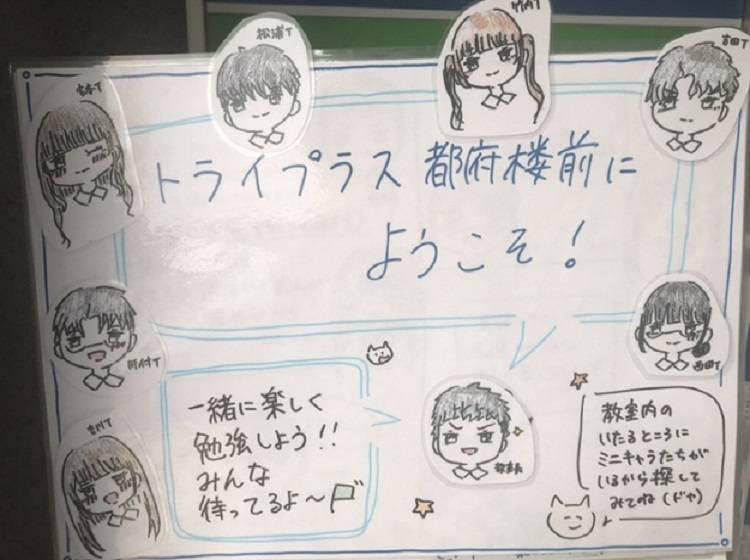 松浦T
竹内T
吉田T
トライプラス 都府楼前に
ようこそ!
西田T
一緒に楽しく
勉強しよう!!
みんな
待ってるよ〜
教室内の
いたるところに
ミニキャラたちが
いるから探して
みてね(ドヤ)